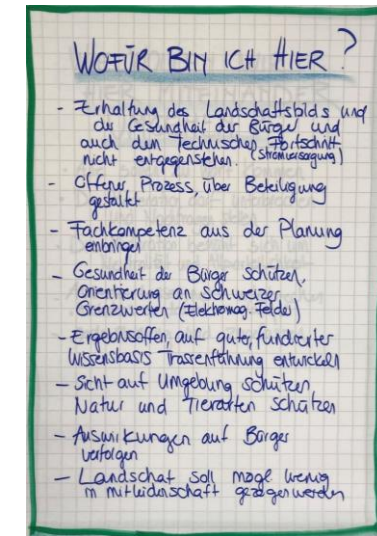 WOFÜR BIN ICH HIER?
- Erhaltung des Landschaftsbilds und
die Gesundheit der Bürger und
auch dem Technischen Fortschritt
nicht entgegenstehen. (Stromversorgung)
- Offener Prozess, über Beteiligung
gestaltet
- Fachkompetenz aus der Planung
einbringen
- Gesundheit der Bürger schützen,
Orientierung an Schweizer
Grenzwerten (Elektromag. Felder)
- Ergebnisoffen, auf guter, fundierter
Wissensbasis Trassenführung entwickeln
- Sicht auf Umgebung schützen,
Natur und Tierarten schützen
- Auswirkungen auf Bürger
verfolgen
- Landschaft soll mögl. wenig
in mitleidenschaft gezogen werden